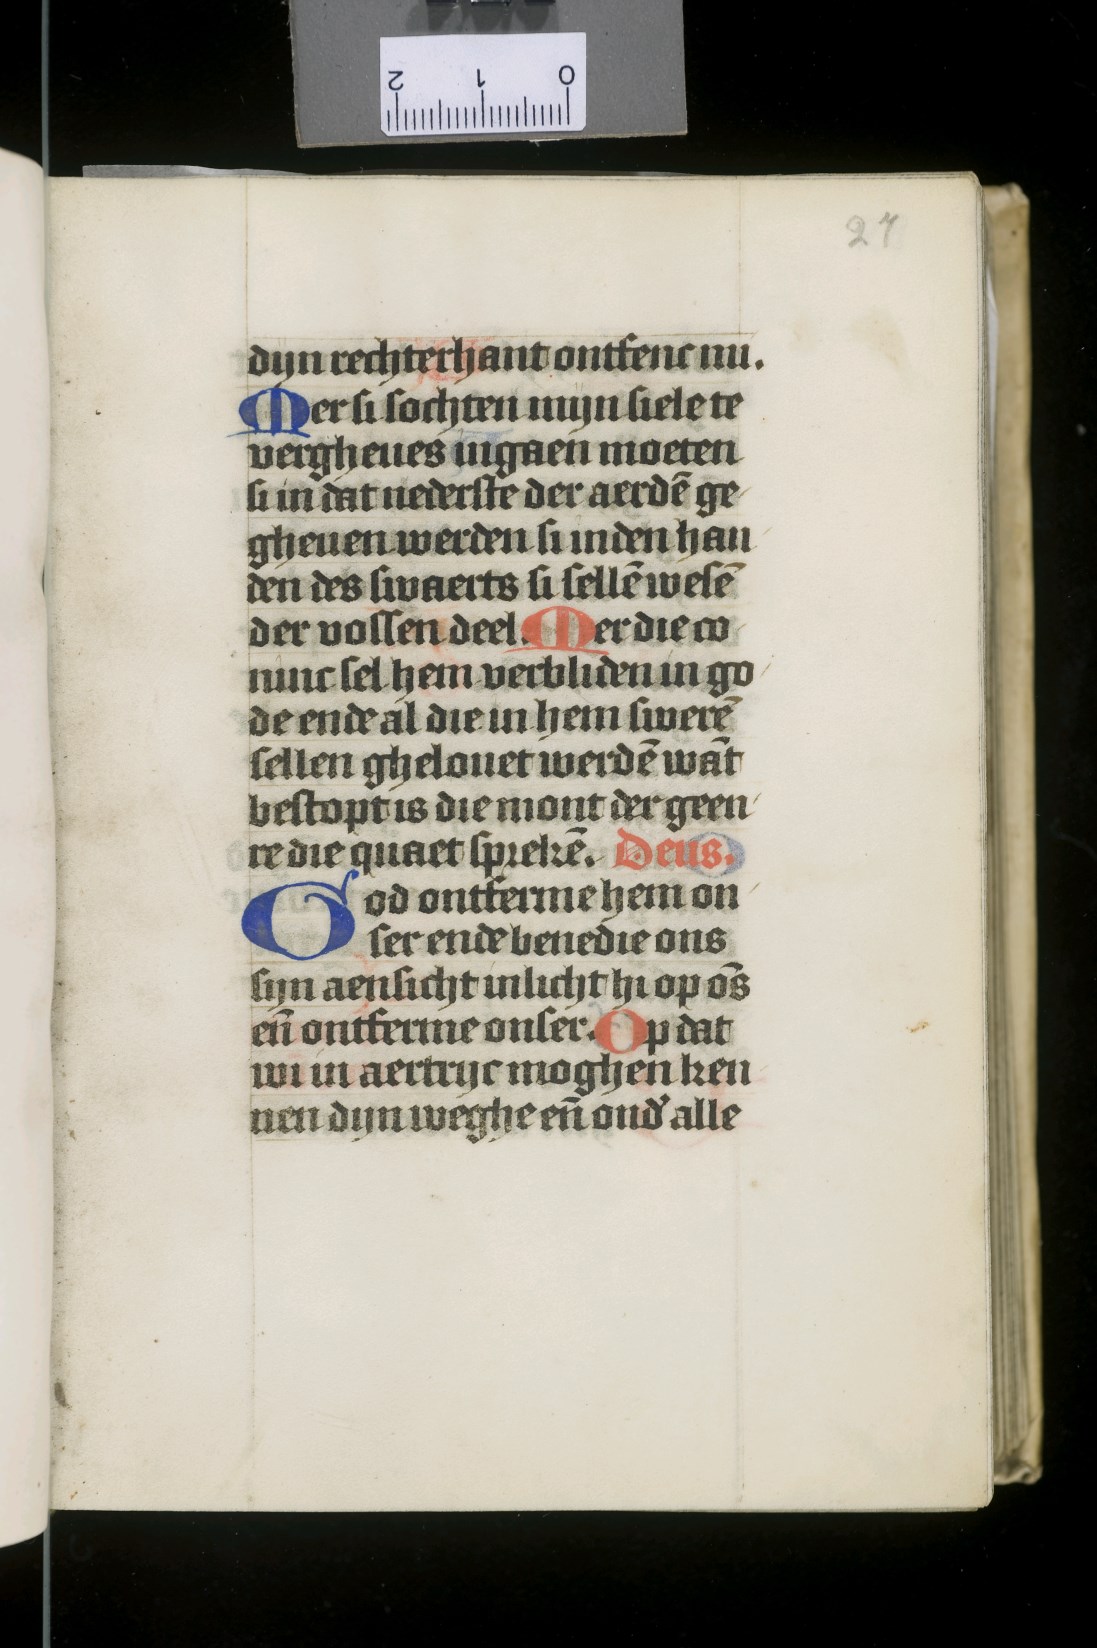 2 1 0
27
dijn rechterhant ontfenc mi.
Mer si sochten mijn siele te
vergheues ingaen moeten
si in dat nederste der aerdē ge
gheuen werden si inden han
den des swaerts si sellē wesē
der vossen deel. Mer die co
ninc sel hem verbliden in go
de ende al die in hem swerē
sellen ghelouet werdē wāt
bestopt is die mont der geen
re die quaet sprekē. Deus.
God ontferme hem on
ser ende benedie ons
sijn aensicht inlicht hi op ōs
eñ ontferme onser. Op dat
wi in aertrijc moghen ken
nen dijn weghe eñ ond' alle